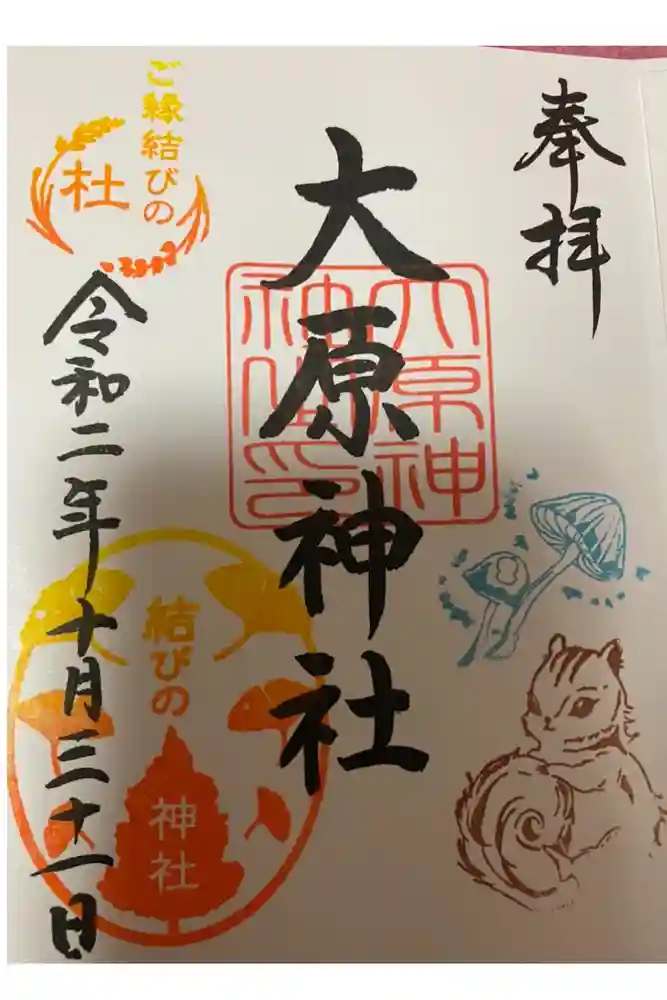 奉拝
大原神社
大原神
社
印
ご縁結びの
杜
令和二年十月三十一日
結びの
神社